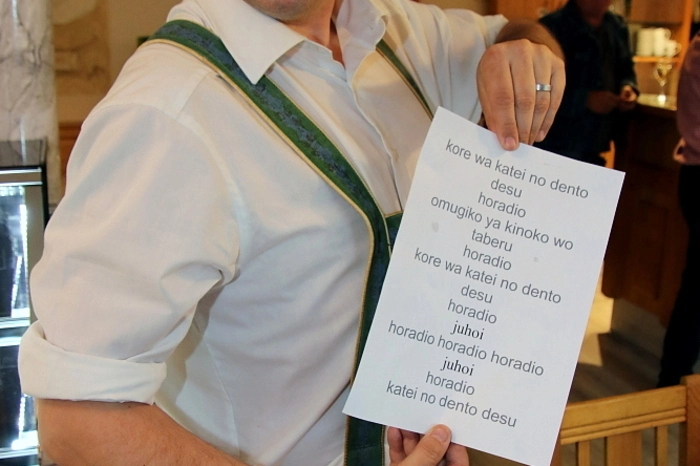 kore wa katei no dento
desu
horadio
omugiko ya kinoko wo
taberu
horadio
kore wa katei no dento
desu
horadio
juhoi
horadio horadio horadio
juhoi
horadio
katei no dento desu